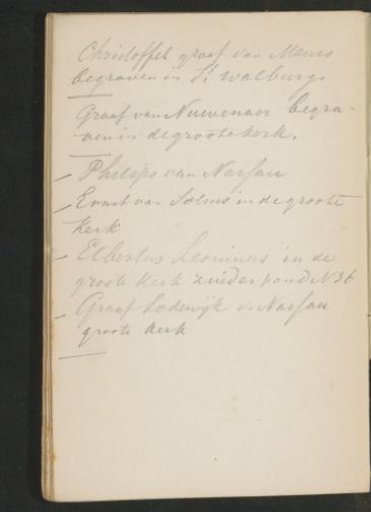 Christoffel graaf van Meurs
begraven in St walburg.
Graaf van Nuwenaer begra-
ven in de groote kerk.
Philips van Nassau
Ernst van Solms in de groote
Kerk
Elbertus Leoninus in de
groote kerk zuider pand N 36
Graaf Lodewijk v. Nassau
groote kerk